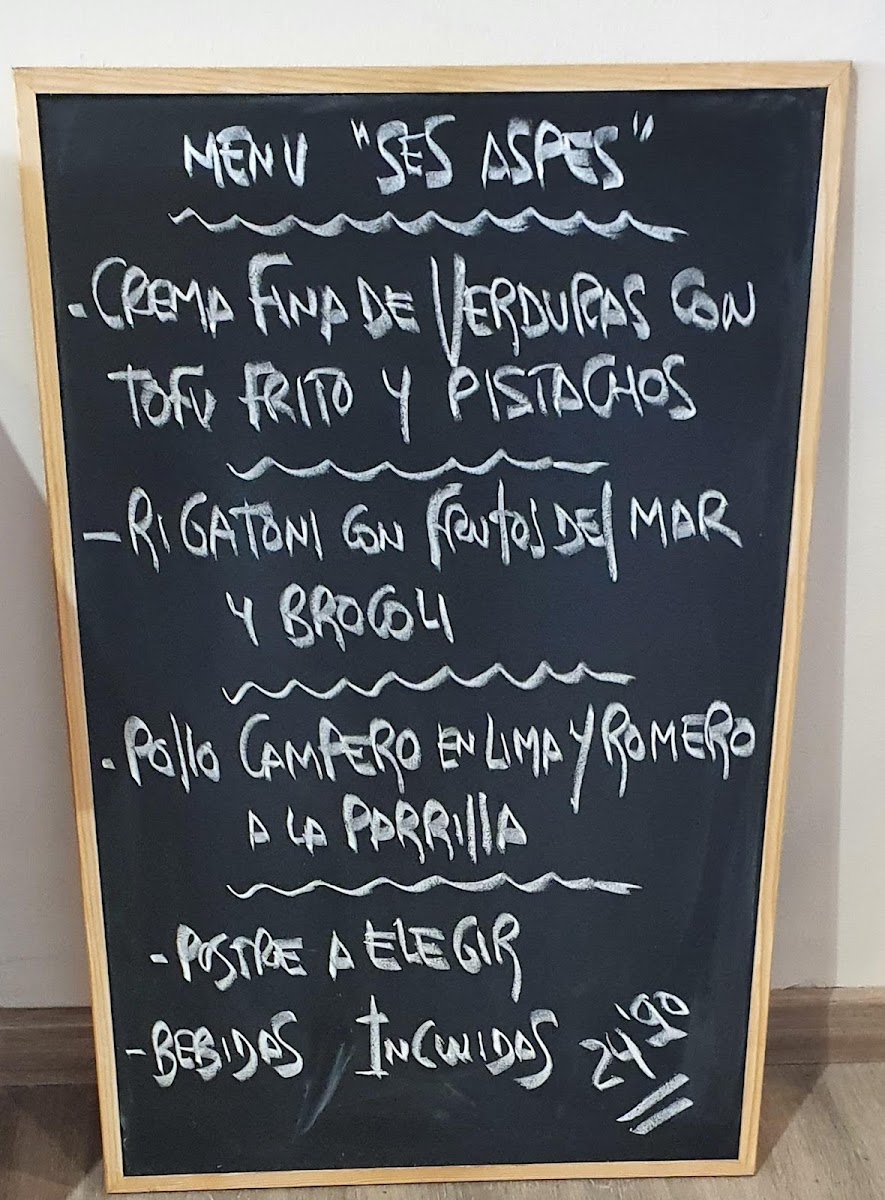 MENU "SES ASPES"
- CREMA FINA DE VERDURAS CON
TOFU FRITO Y PISTACHOS
- RIGATONI CON FRUTOS DEL MAR
Y BROCOLI
- POLLO CAMPERO EN LIMA Y ROMERO
A LA PARRILLA
- POSTRE A ELEGIR
- BEBIDAS INCLUIDAS 24'90